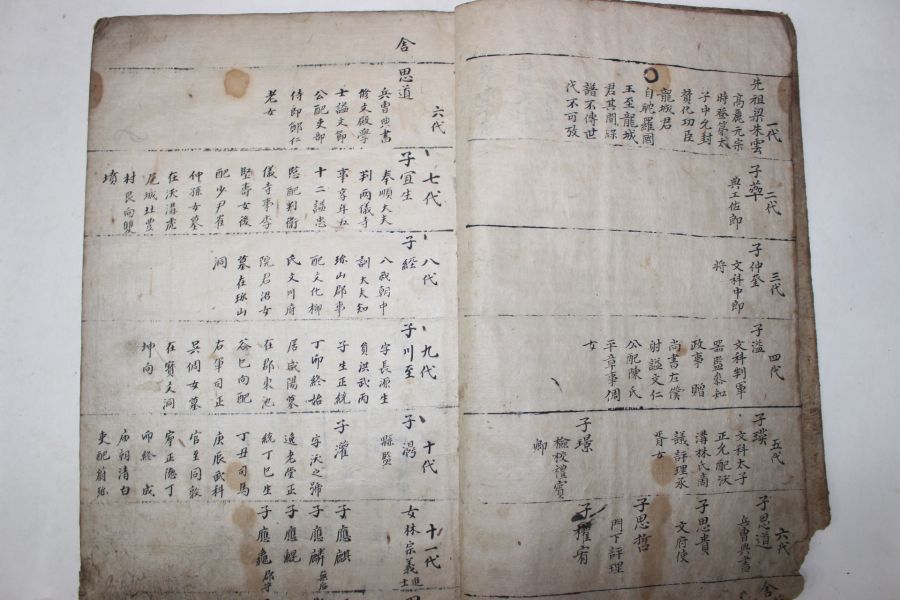 一代
先祖梁朱雲
高麗元宗
時登第太
子中允封
贊化功臣
龍城君
自耽羅國
王至龍城
君其間綠
譜不傳世
代不可攷
二代
子蕐
典工佐郎
三代
子仲登
文科中郎
將
四代
子濫
文科判軍
器監參知
政事 贈
尚書左僕
射諡文仁
公配陳氏
平章事倜
女
五代
子璞
文科太子
正允配沃
溝林氏商
議評理承
胥女
子璟
檢校禮賓
卿
六代
子思道
兵曹典書
子思貴
文府使
子思哲
門下評理
子擢宥
舎
思道
六代
兵曹典書
修文殿學
士諡文節
公配吏部
侍郎鄭仁
老女
七代
子宜生
奉順大夫
判兩儀寺
事享年五
十二諡忠
配判衛
儀寺事李
堅壽女後
配少尹崔
仲孫女墓
在沃溝虎
尾城社豊
村艮向雙
墳
八代
子經
八我朝中
訓大夫知
珍山郡事
配文化柳
氏文川府
院君沼女
墓在珍山
洞
九代
子川至
字長源生
負洪武丙
子生正統
丁卯終始
居咸陽墓
在郡東池
谷巳向配
右軍司正
吳倜女墓
在寶文洞
坤向
十代
子渴
縣監
子灌
字沃之號
逸老堂正
統丁巳生
丁丑司馬
庚辰武科
官至同敦
寧正德丁
卯終 成
廟朝清白
吏配
十一代
女林宗義進士
子應麒
子應麟
子應鯤
子應龜